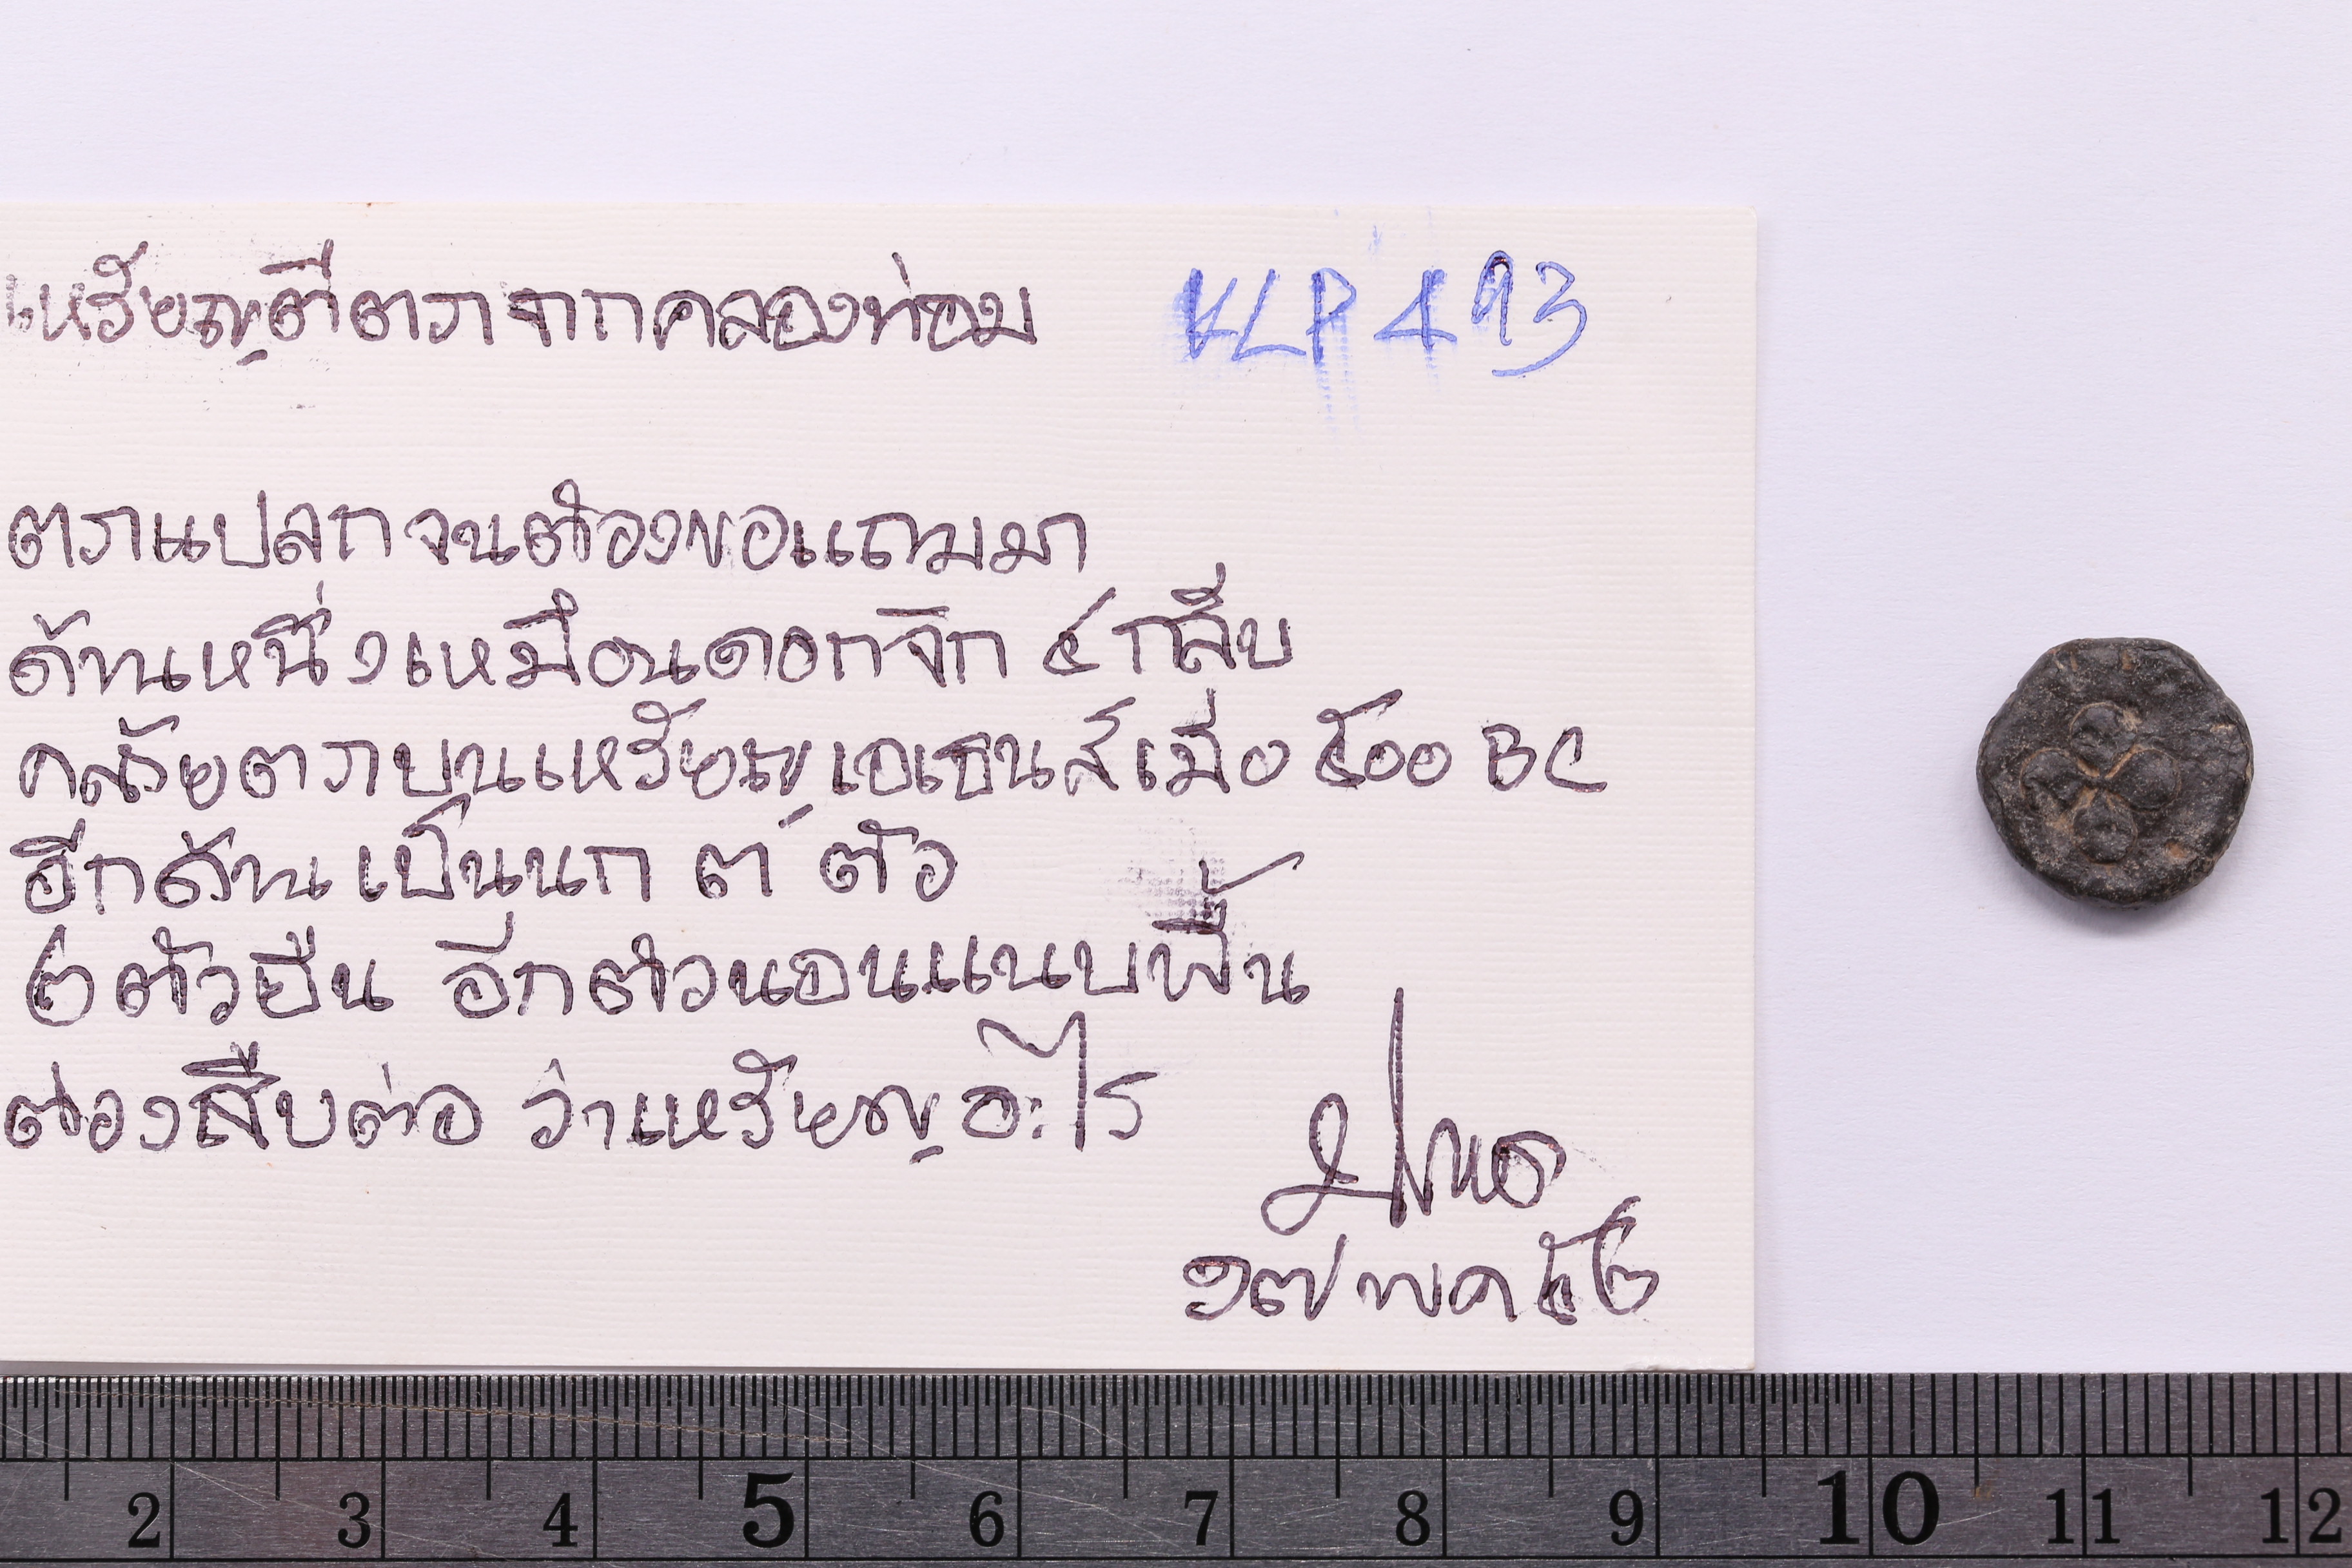 เหรียญตีตราจากคลองท่อม KLP 493
ตราแปลก จนต้องขอแถมมา
ด้านหนึ่งเหมือนดอกจิก ๔ กลีบ
คล้ายตราบนเหรียญเอเธนส์เมื่อ ๕๐๐ BC
อีกด้านเป็นนก ๓ ตัว
๒ ตัวยืน อีกตัวนอนแนบพื้น
ต้องสืบต่อ ว่าเหรียญอะไร
๑๗ พค ๕๒
2 3 4 5 6 7 8 9 10 11 12